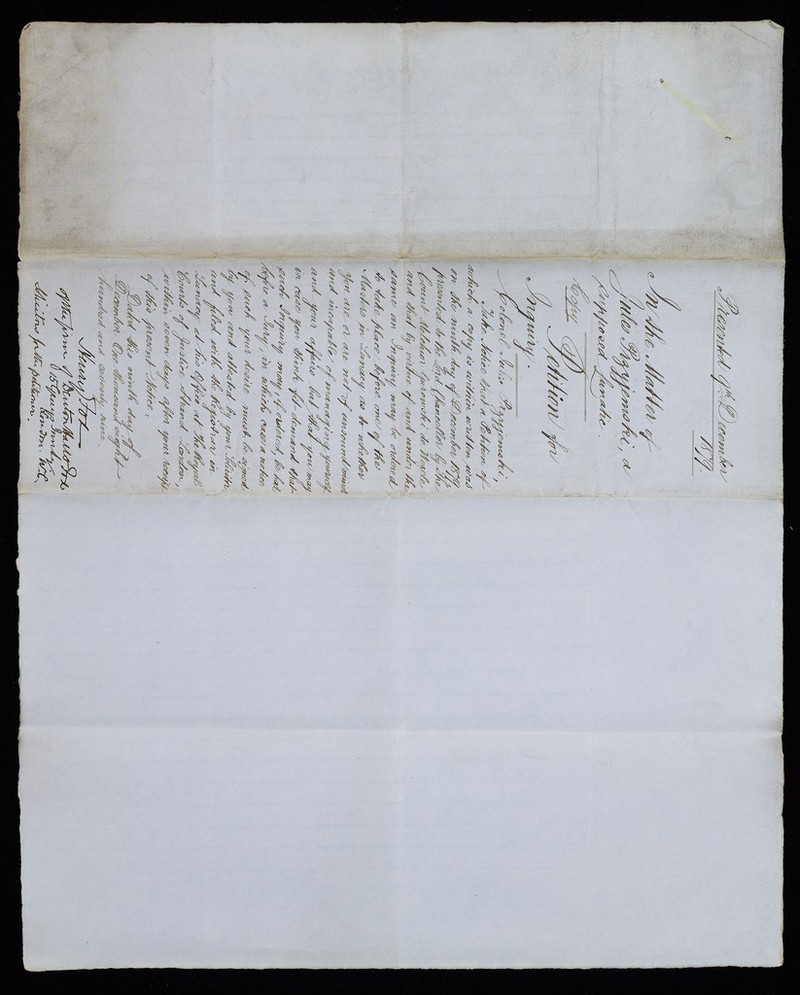 Presented 9th December
1879.
In the Matter of
Jules Przyjemski, a
supposed Lunatic.
Copy
Petition for
Inquiry.
Colonel Jules Przyjemski,
Take Notice that a Petition of
which a copy is within written was
on the ninth day of December 1879
presented to the Lord Chancellor by The
Count Melchior
and that by virtue of and under the
same an Inquiry may be ordered
to take place before one of the
Masters in Lunacy as to whether
you are or are not of unsound mind
and incapable of managing yourself
and your affairs but that you may
in case you think fit demand that
such Inquiry may, if ordered, be had
before a Jury in which case a notice
of such your desire must be signed
by you and attested by your Solicitor
and filed with the Registrar in
Lunacy at his Office at the Royal
Courts of Justice Strand London,
within seven days after your receipt
of this present Notice.
Dated this ninth day of
December One thousand eight
hundred and seventy nine.
Henry Fox
of the firm of
London. W.C.
Solicitors for the petitioner.